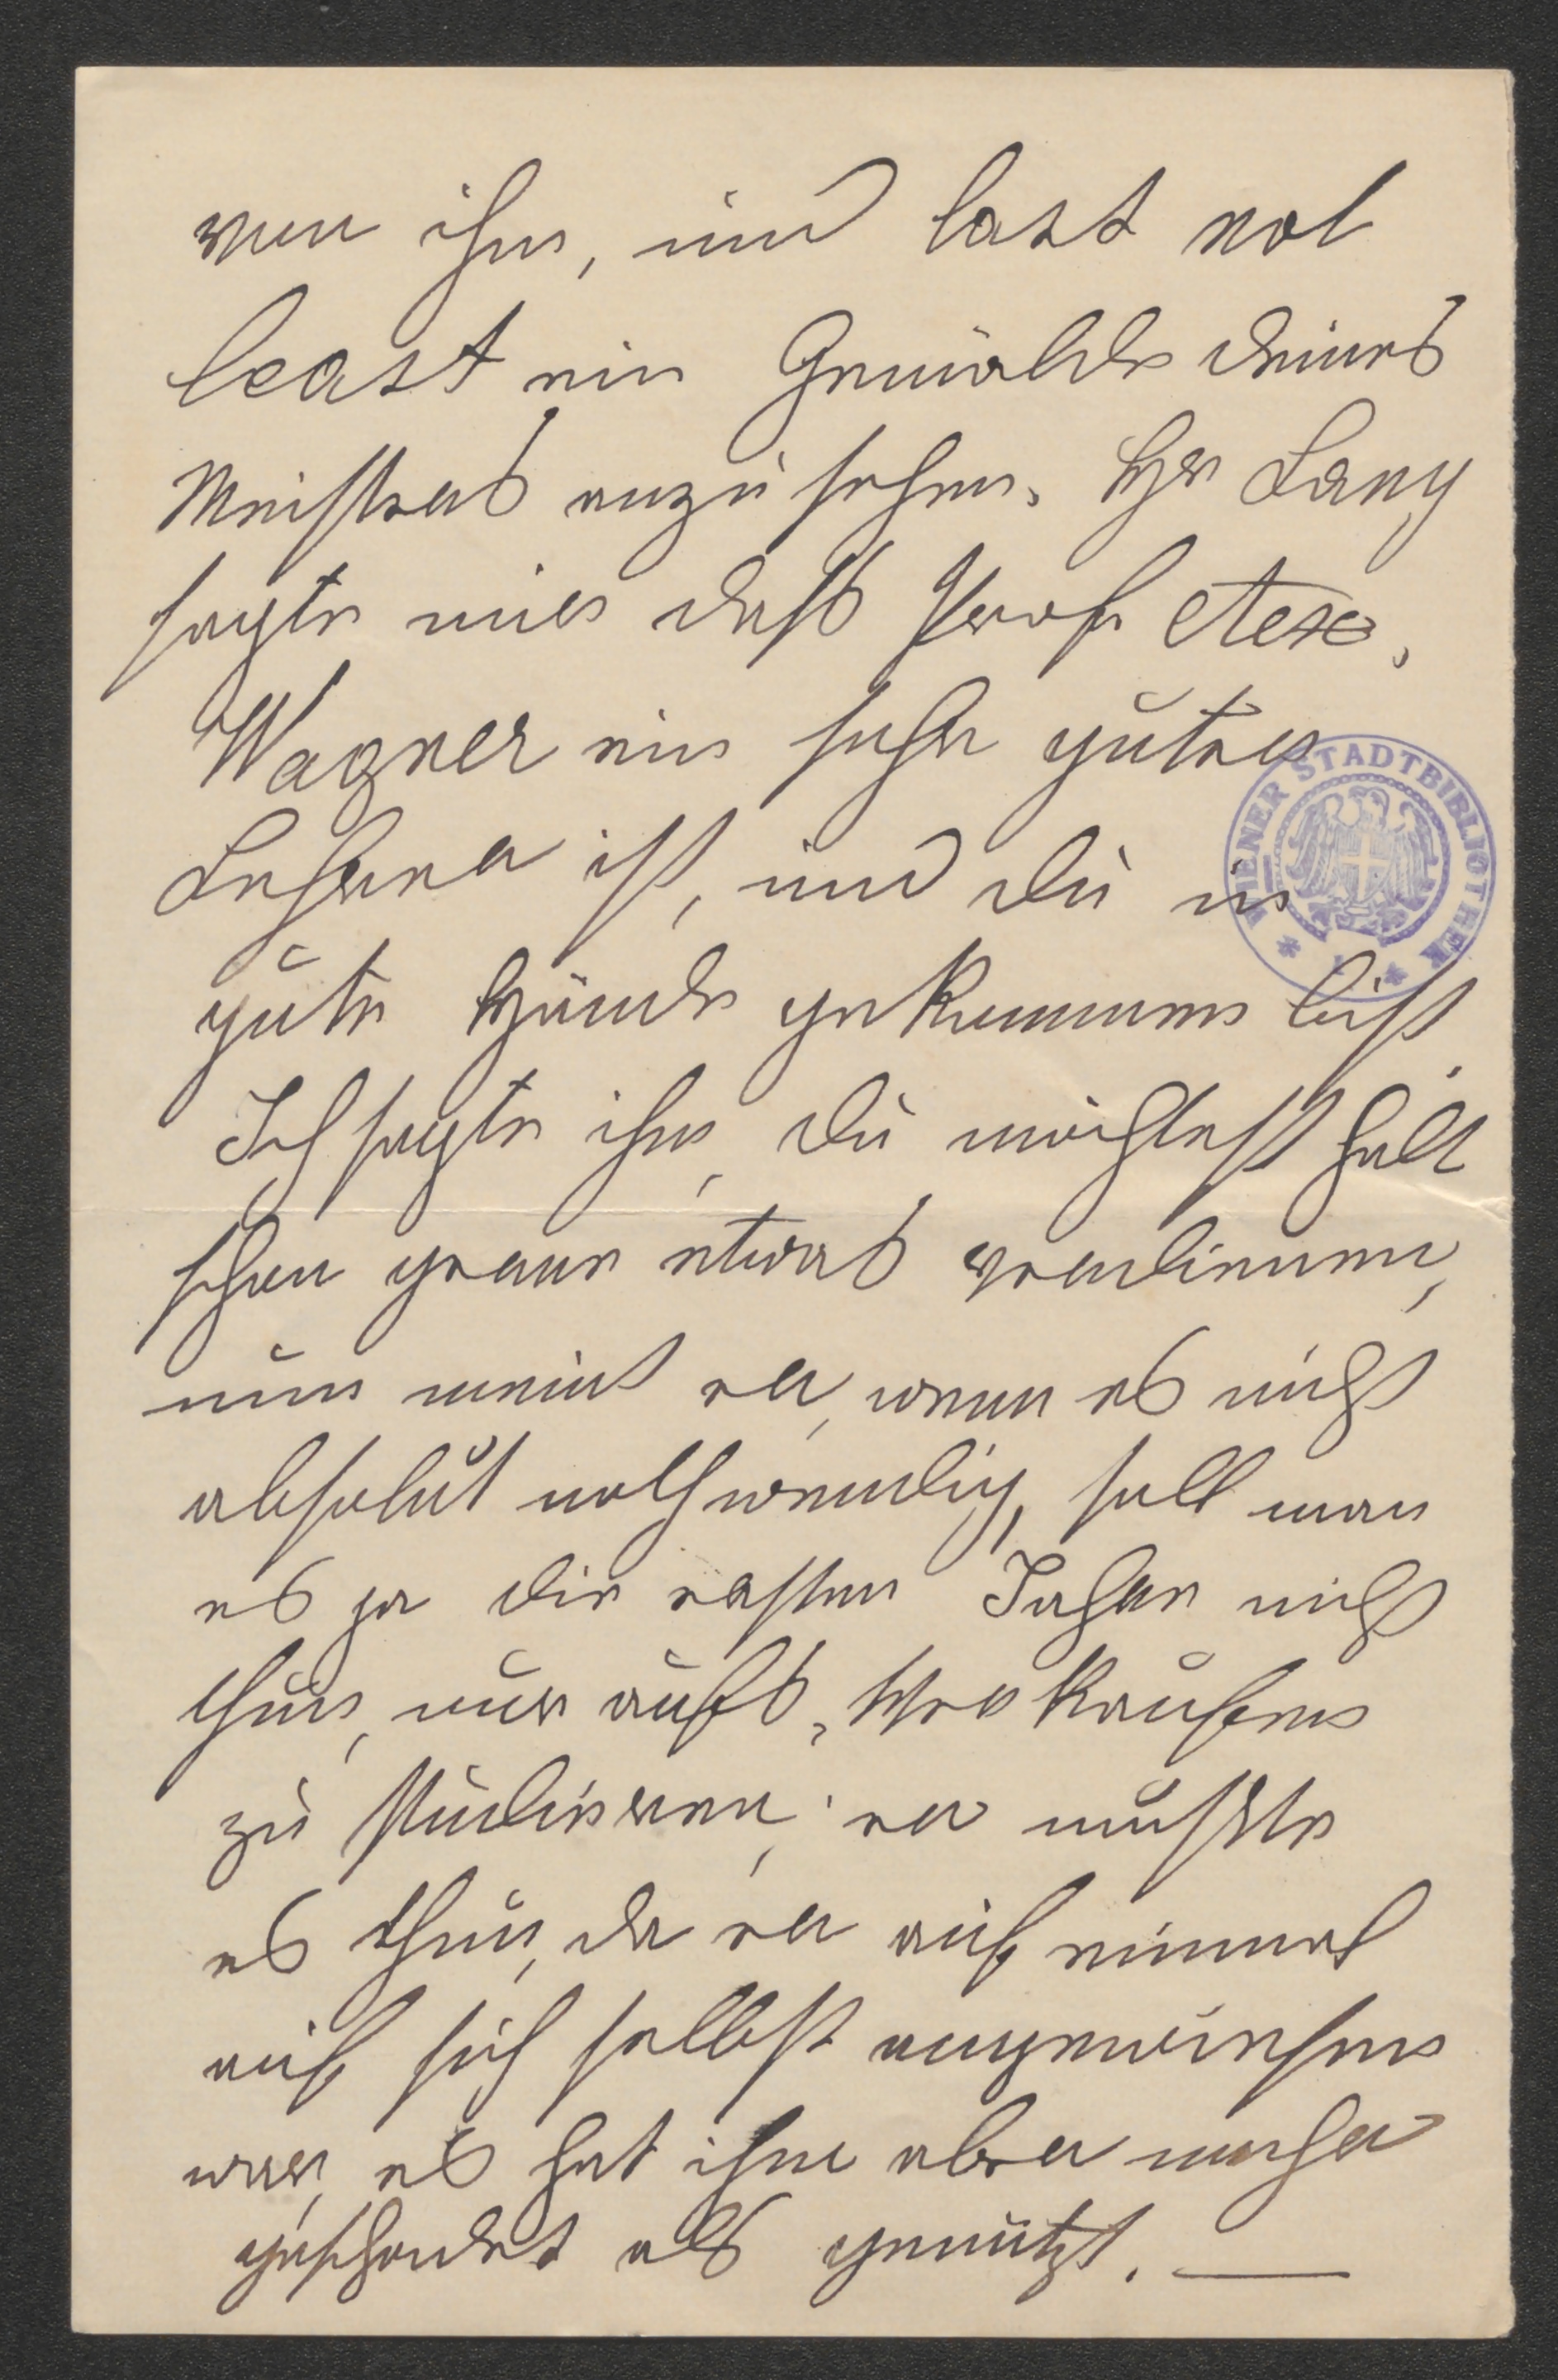 von ihm, und last not
least ein Gemälde deines
Meisters anzusehen. Hr Lang
sagte mir daß Prof. Alex.
Wagner ein sehr guter
Lehrer ist, und du in
gute Hände gekommen bist.
Ich sagte ihm, du möchtest halt
schon gerne etwas verdienen,
nun meint er, wenn es nicht
absolut nothwendig, soll man
es ja die ersten Jahre nicht
thun, nur aufs, Verkaufen
zu studieren; er mußte
es thun, da er auf einmal
auf sich selbst angewiesen
war, es hat ihm aber mehr
geschadet als genützt. —
WIENER STADTBIBLIOTHEK